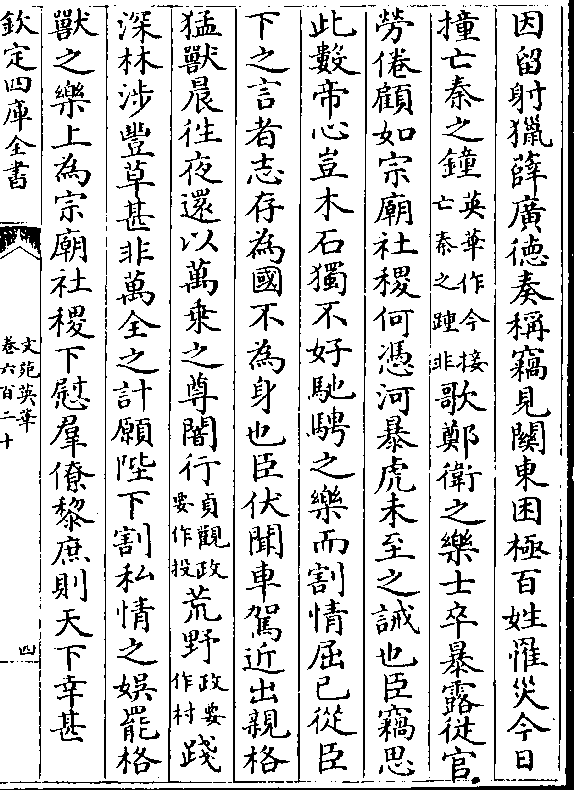 因留射獵薛廣德奏稱竊見關東困極百姓罹災今日
撞亡秦之鐘英華作今接亡秦之踵非歌鄭衛之樂士卒暴露從官
勞倦顧如宗廟社稷何憑河暴虎未至之誡也臣竊思
此數帝心豈木石獨不好馳騁之樂而割情屈己從臣
下之言者志存為國不為身也臣伏聞車駕近出親格
猛獸晨往夜還以萬乗之尊闇行貞觀政要作投荒野政要作村踐
深林涉豐草甚非萬全之計願陛下割私情之娯罷格
獸之樂上為宗廟社稷下慰羣僚黎庶則天下幸甚
欽定四庫全書
文苑英華
卷六百二十
四